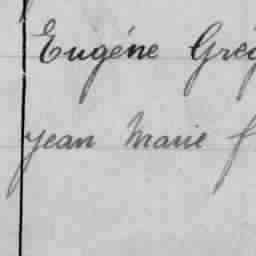 Eugéne Grég
Jean Marie f